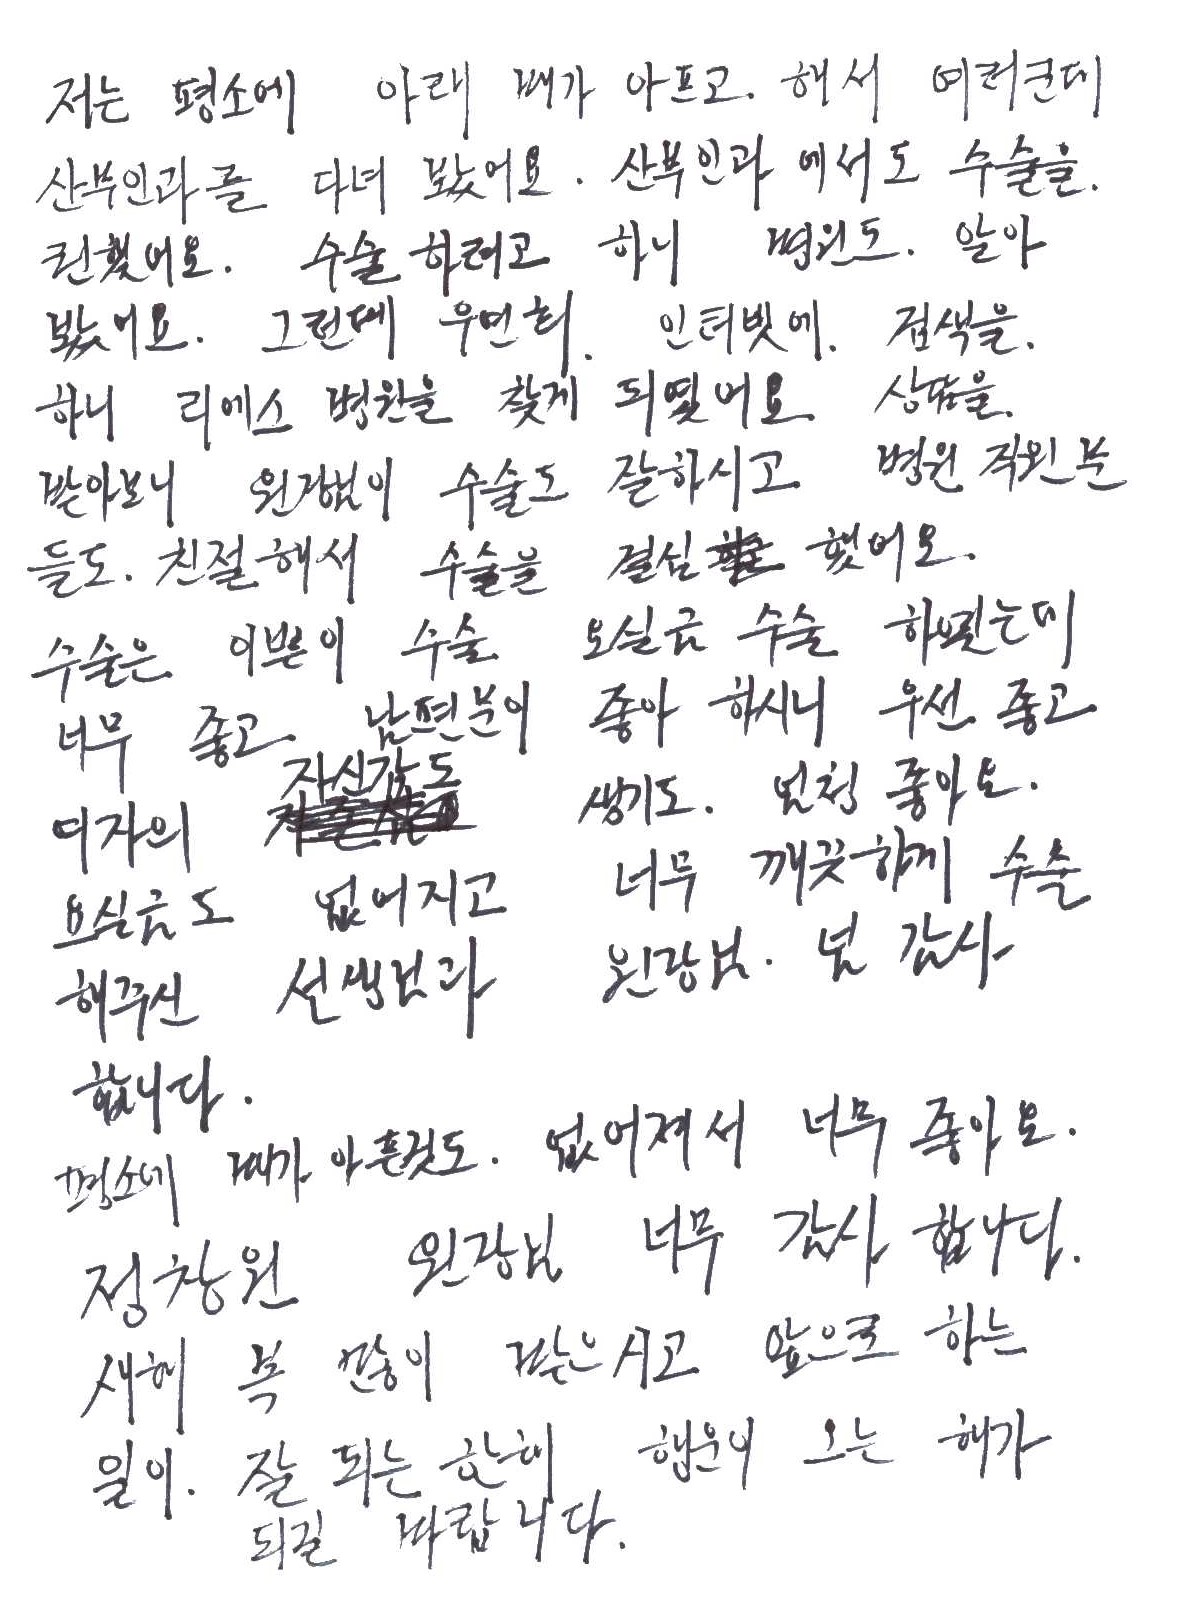 저는 평소에 아래 배가 아프고. 해서 여러군데
산부인과를 다녀 봤어요. 산부인과 에서도 수술을.
권했어요. 수술 하려고 하니 병원도. 알아
봤어요. 그런데 우연히. 인터넷에. 검색을.
하니 리에스 병원을 찾게 되였어요. 상담을.
받아보니 원장님이 수술도 잘하시고 병원 직원분
들도. 친절해서 수술을 결심 했어요.
수술은 이쁜이 수술 요실금 수술 하였는데
너무 좋고. 남편분이 좋아 하시니 우선 좋고
여자의 자신감도 생기도. 엄청 좋아요.
요실금도 없어지고 너무 깨끗하게 수술
해주신 선생님과 원장님. 넘 감사
합니다.
평소에 배가 아픈것도. 없어져서 너무 좋아요.
정창원 원장님 너무 감사 합니다.
새해 복 많이 받으시고 앞으로 하는
일이. 잘 되는 한해 행운이 오는 해가
되길 바랍니다.